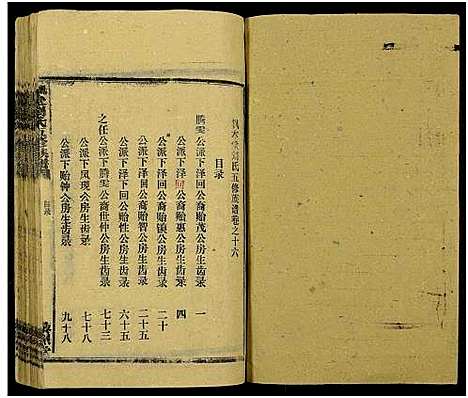 水劉氏五修族譜卷之十六
目录
腾雯公派下泽回公裔贻茂公房生齿录 一
公派下泽回公裔贻惠公房生齿录 四
公派下泽回公裔贻镇公房生齿录 二十
公派下泽回公裔贻智公房生齿录 二十五
公派下泽下回公贻性公房生齿录 六十五
之任公派下腾雯公裔世仲公房生齿录 七十三
公派下凤现公房生齿录 七十八
公派下贻钟公房生齿录 九十八
目录